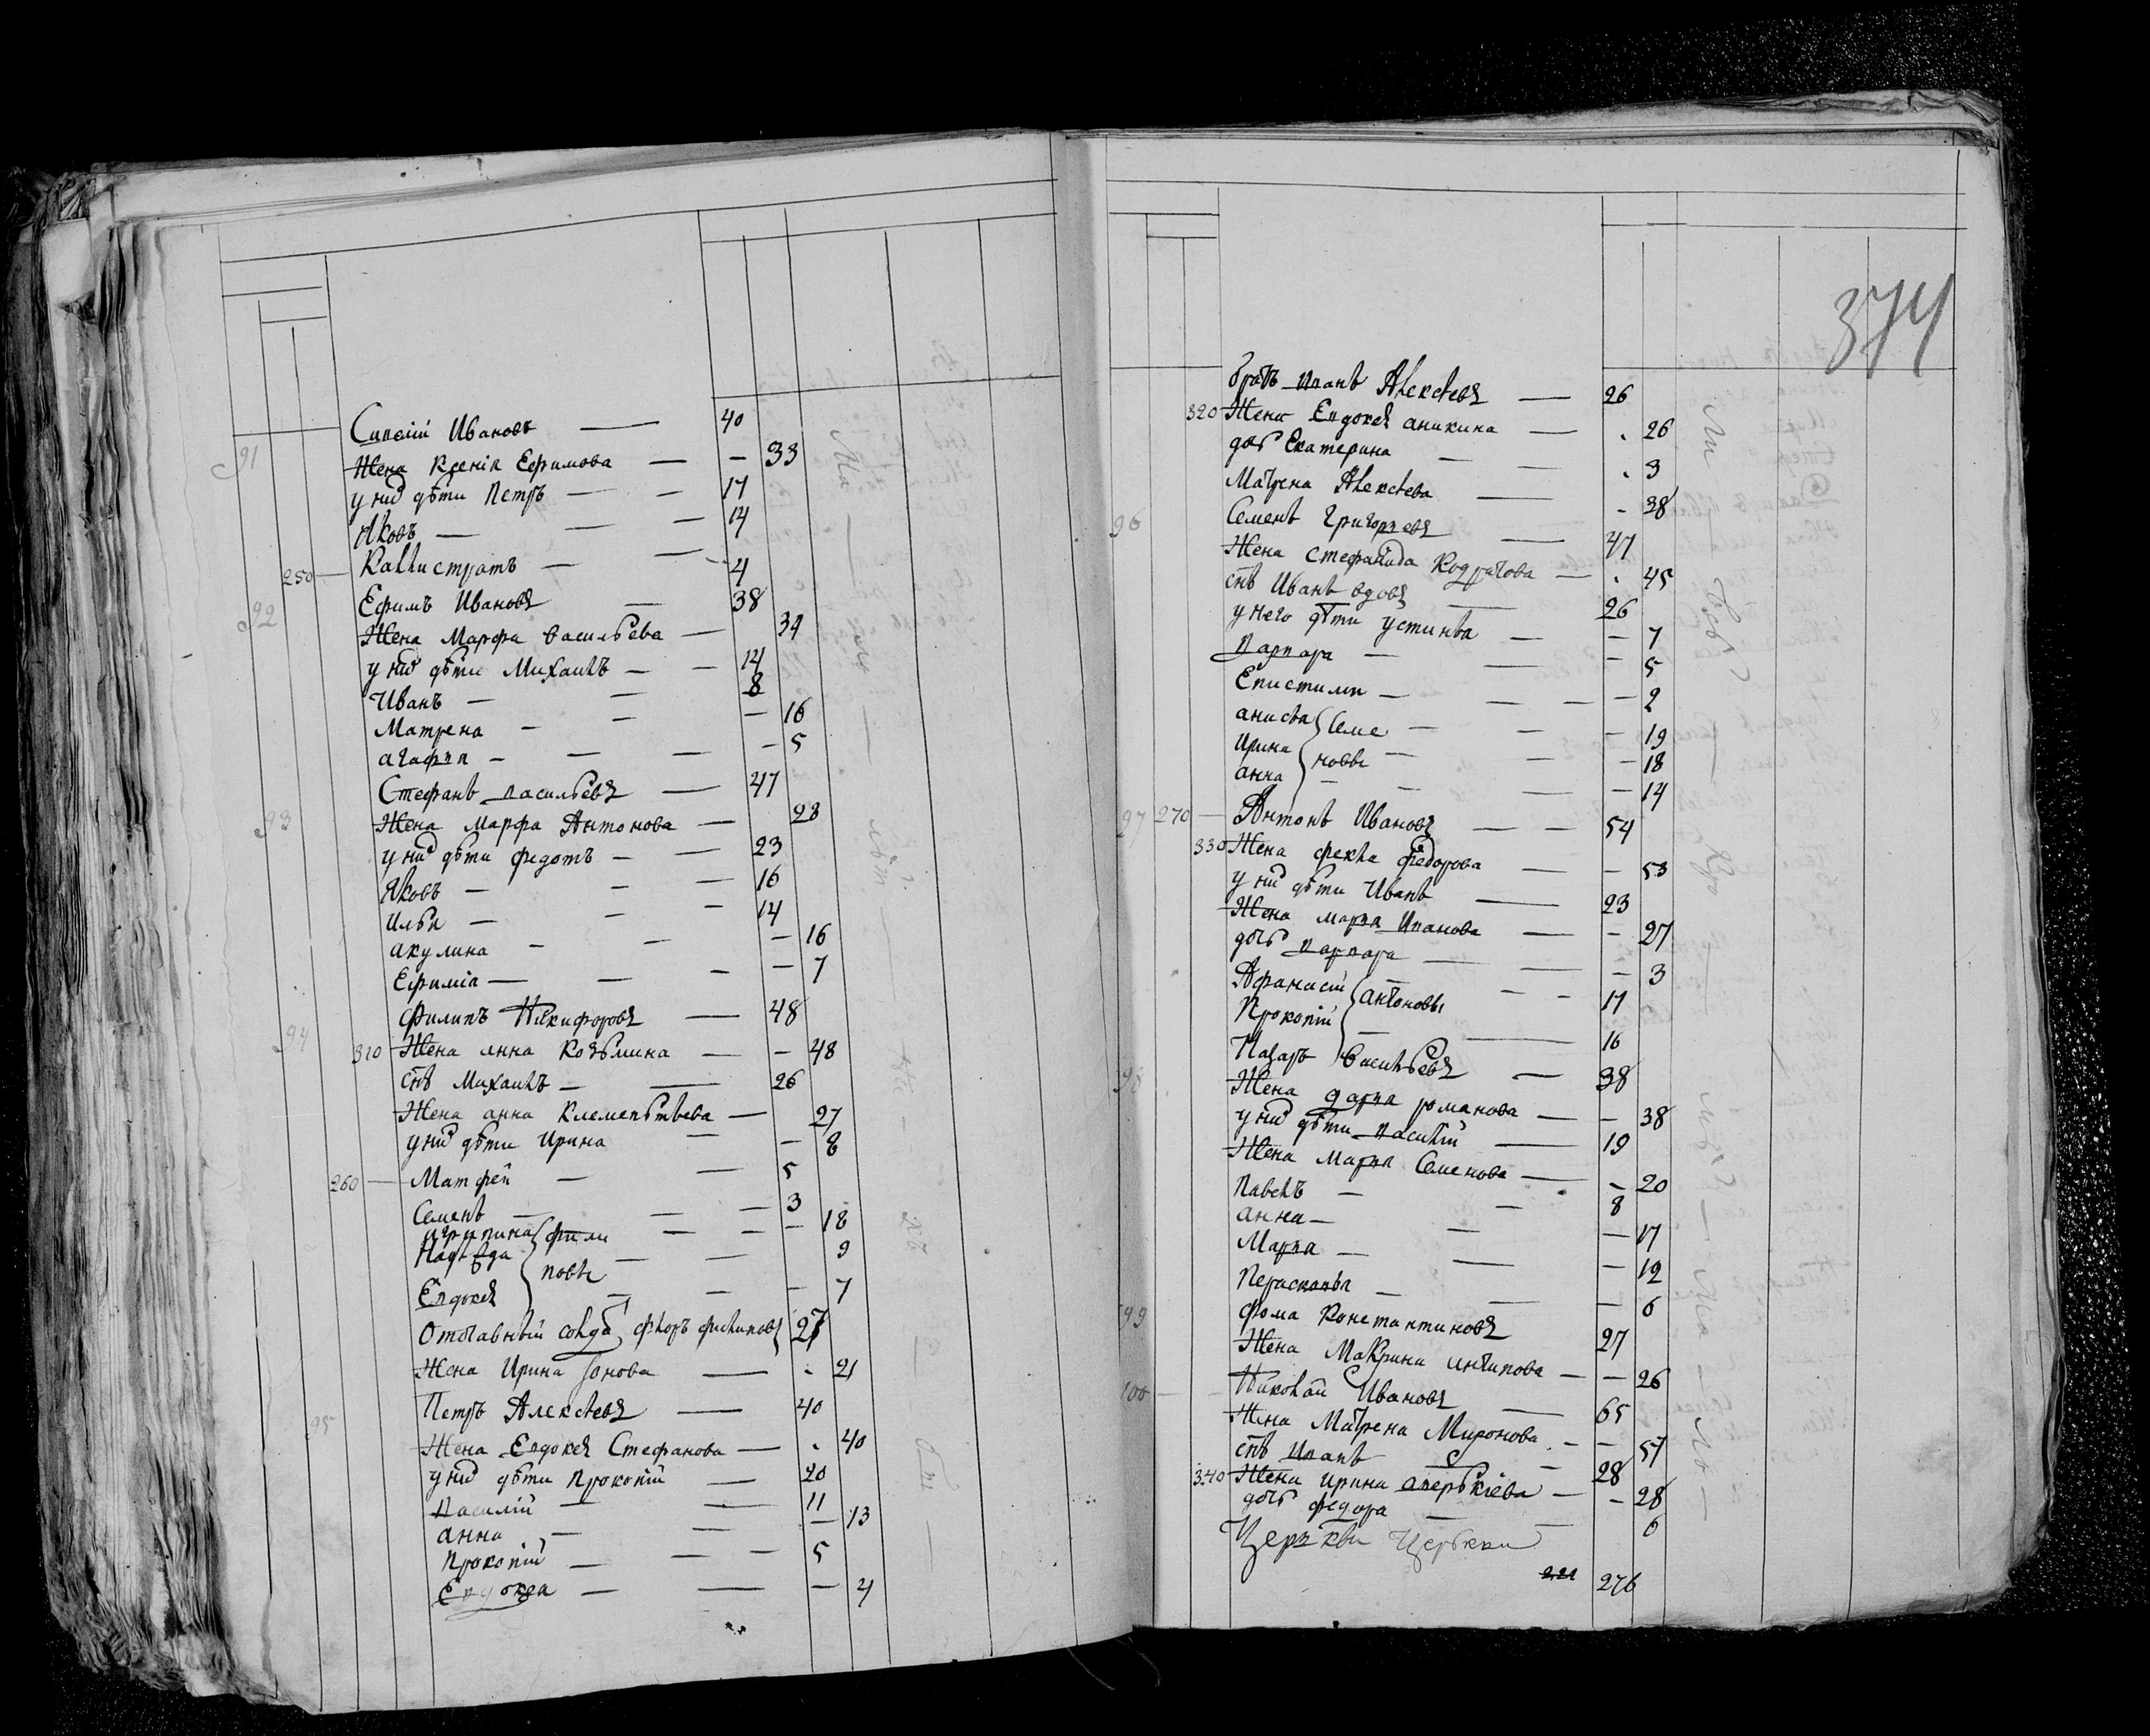 91 Сипсiй Ивановъ — 40
Жена Ксенiя Ефимова — — 33
у них дѣти Петръ — — 17
Яковъ — — — 14
250 — Каллистратъ — — 4
92 Ефимъ Ивановъ — 38
Жена Марфа Васильева — 34
у них дѣти Михаилъ — — 14
Иванъ — — 8
Матрена — — — 16
агафия — — — — 5
93 Стефанъ васильевъ — 47
Жена Марфа Антонова — 28
у них дѣти федотъ — — 23
Яковъ — — — 16
Илья — — — 14
акулина — — — 16
Ефимiа — — — — 7
94 Филипъ Никифоровъ — 48
310 Жена анна Козьмина — — 48
снъ Михаилъ — — 26
Жена анна Клементьева — 27
у них дѣти Ирина — — 8
260 — Матфей — — 5
Семенъ — — — 3
агрипина } фили — — — 18
Надежда — — 9
Евдокея } повы — — — 7
Отставный солдатъ флоръ филиповъ 27
Жена Ирина Iонова — . 21
95 Петръ Алексѣевъ — 40
Жена Евдокея Стефанова — . 40
у них дѣти Прокопiй — 20
василiй — — 11
анна — — — 13
Прокопiй — — — 5
Евдокеа — — — 4
374
братъ Иванъ Алексѣевъ — 26
320 Жена Евдокея аникина — . 26
дочь Екатерина — — . 3
Матрена Алексѣева — - 38
96 Семенъ Григорьевъ — 47
Жена стефанида Кодратова — . 45
снъ Иванъ вдовъ — 26
у него дѣти устинья — — 7
варвара — — — 5
Епистимия — — — — 2
анисья } Семе — — — 19
Ирина } новы — — — 18
анна — — — — 14
97 270 — Антонъ Ивановъ — — 54
330 Жена фекла федорова — — 53
у них дѣти Иванъ — 23
Жена мария Иванова — — 27
дочь варвара — — — 3
Афанасiй } антоновы — — 17
Прокопiй — — 16
98 Назаръ Васильевъ — 38
Жена дария романова — — 38
у них дѣти василiй — 19
Жена Мария Семенова — — 20
Павелъ — — 8
анна — — — 17
Мария — — — 12
Парасковья — — — 6
99 фома Константиновъ 27
Жена Макрина антипова — — 26
100 — Николай Ивановъ — 65
Жена Матрена Миронова — — 57
снъ Иванъ — 28
340 Жена ирина аверькiева — — 28
дочь федора — — 6
Церькви Церькви
221 276